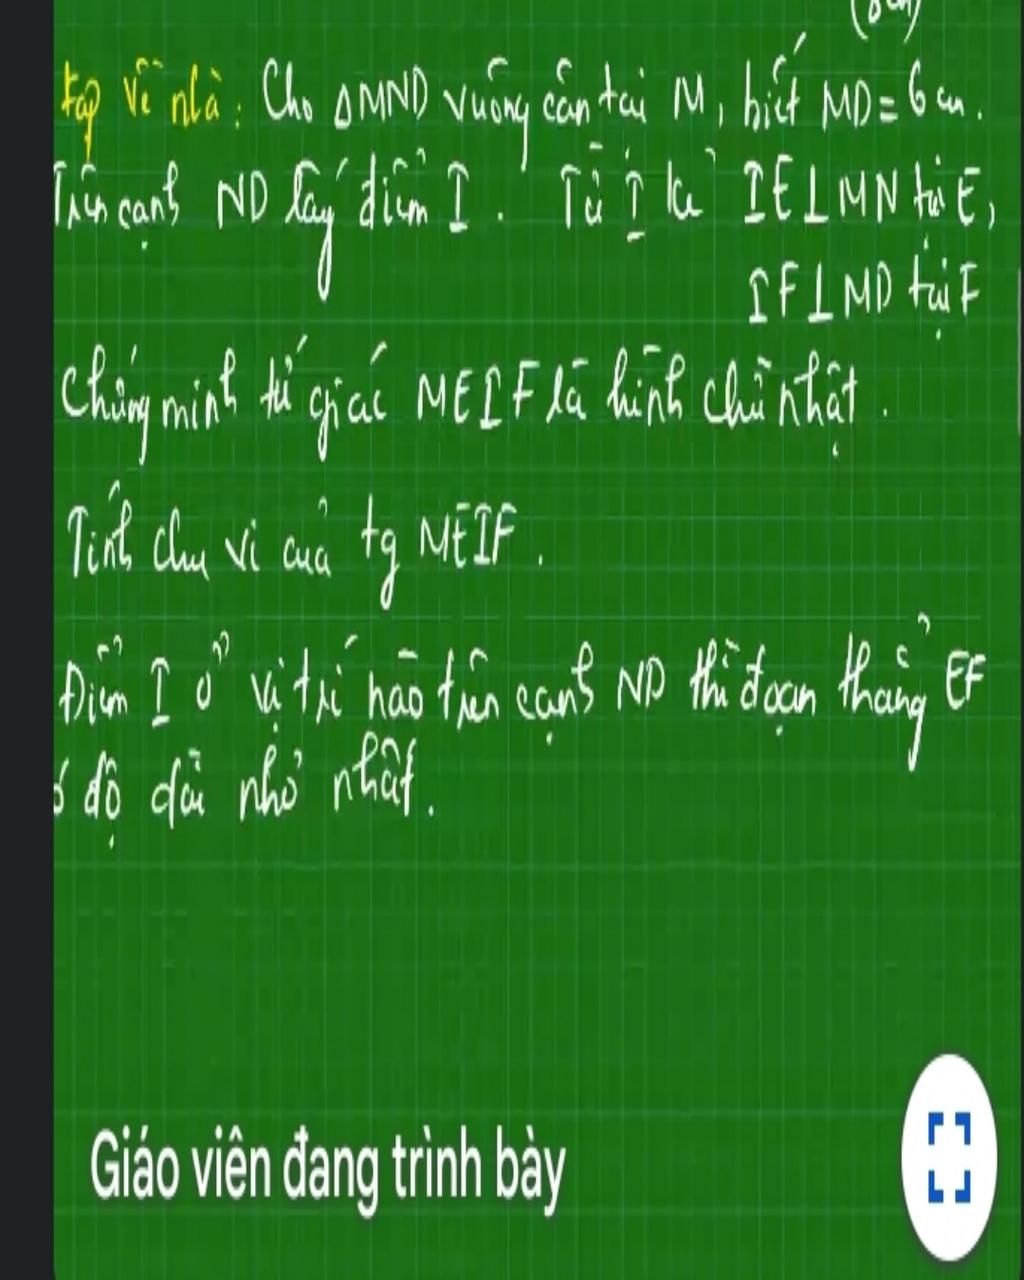 (8cm)
tập về nhà: Cho △MND vuông cân tại M, biết MD = 6 cm.
Trên cạnh ND lấy điểm I. Từ I kẻ IE⊥MN tại E,
IF⊥MD tại F
Chứng minh tứ giác MEIF là hình chữ nhật.
Tính chu vi của tg MEIF.
Điểm I ở vị trí nào trên cạnh ND thì đoạn thẳng EF
ó độ dài nhỏ nhất.
Giáo viên đang trình bày